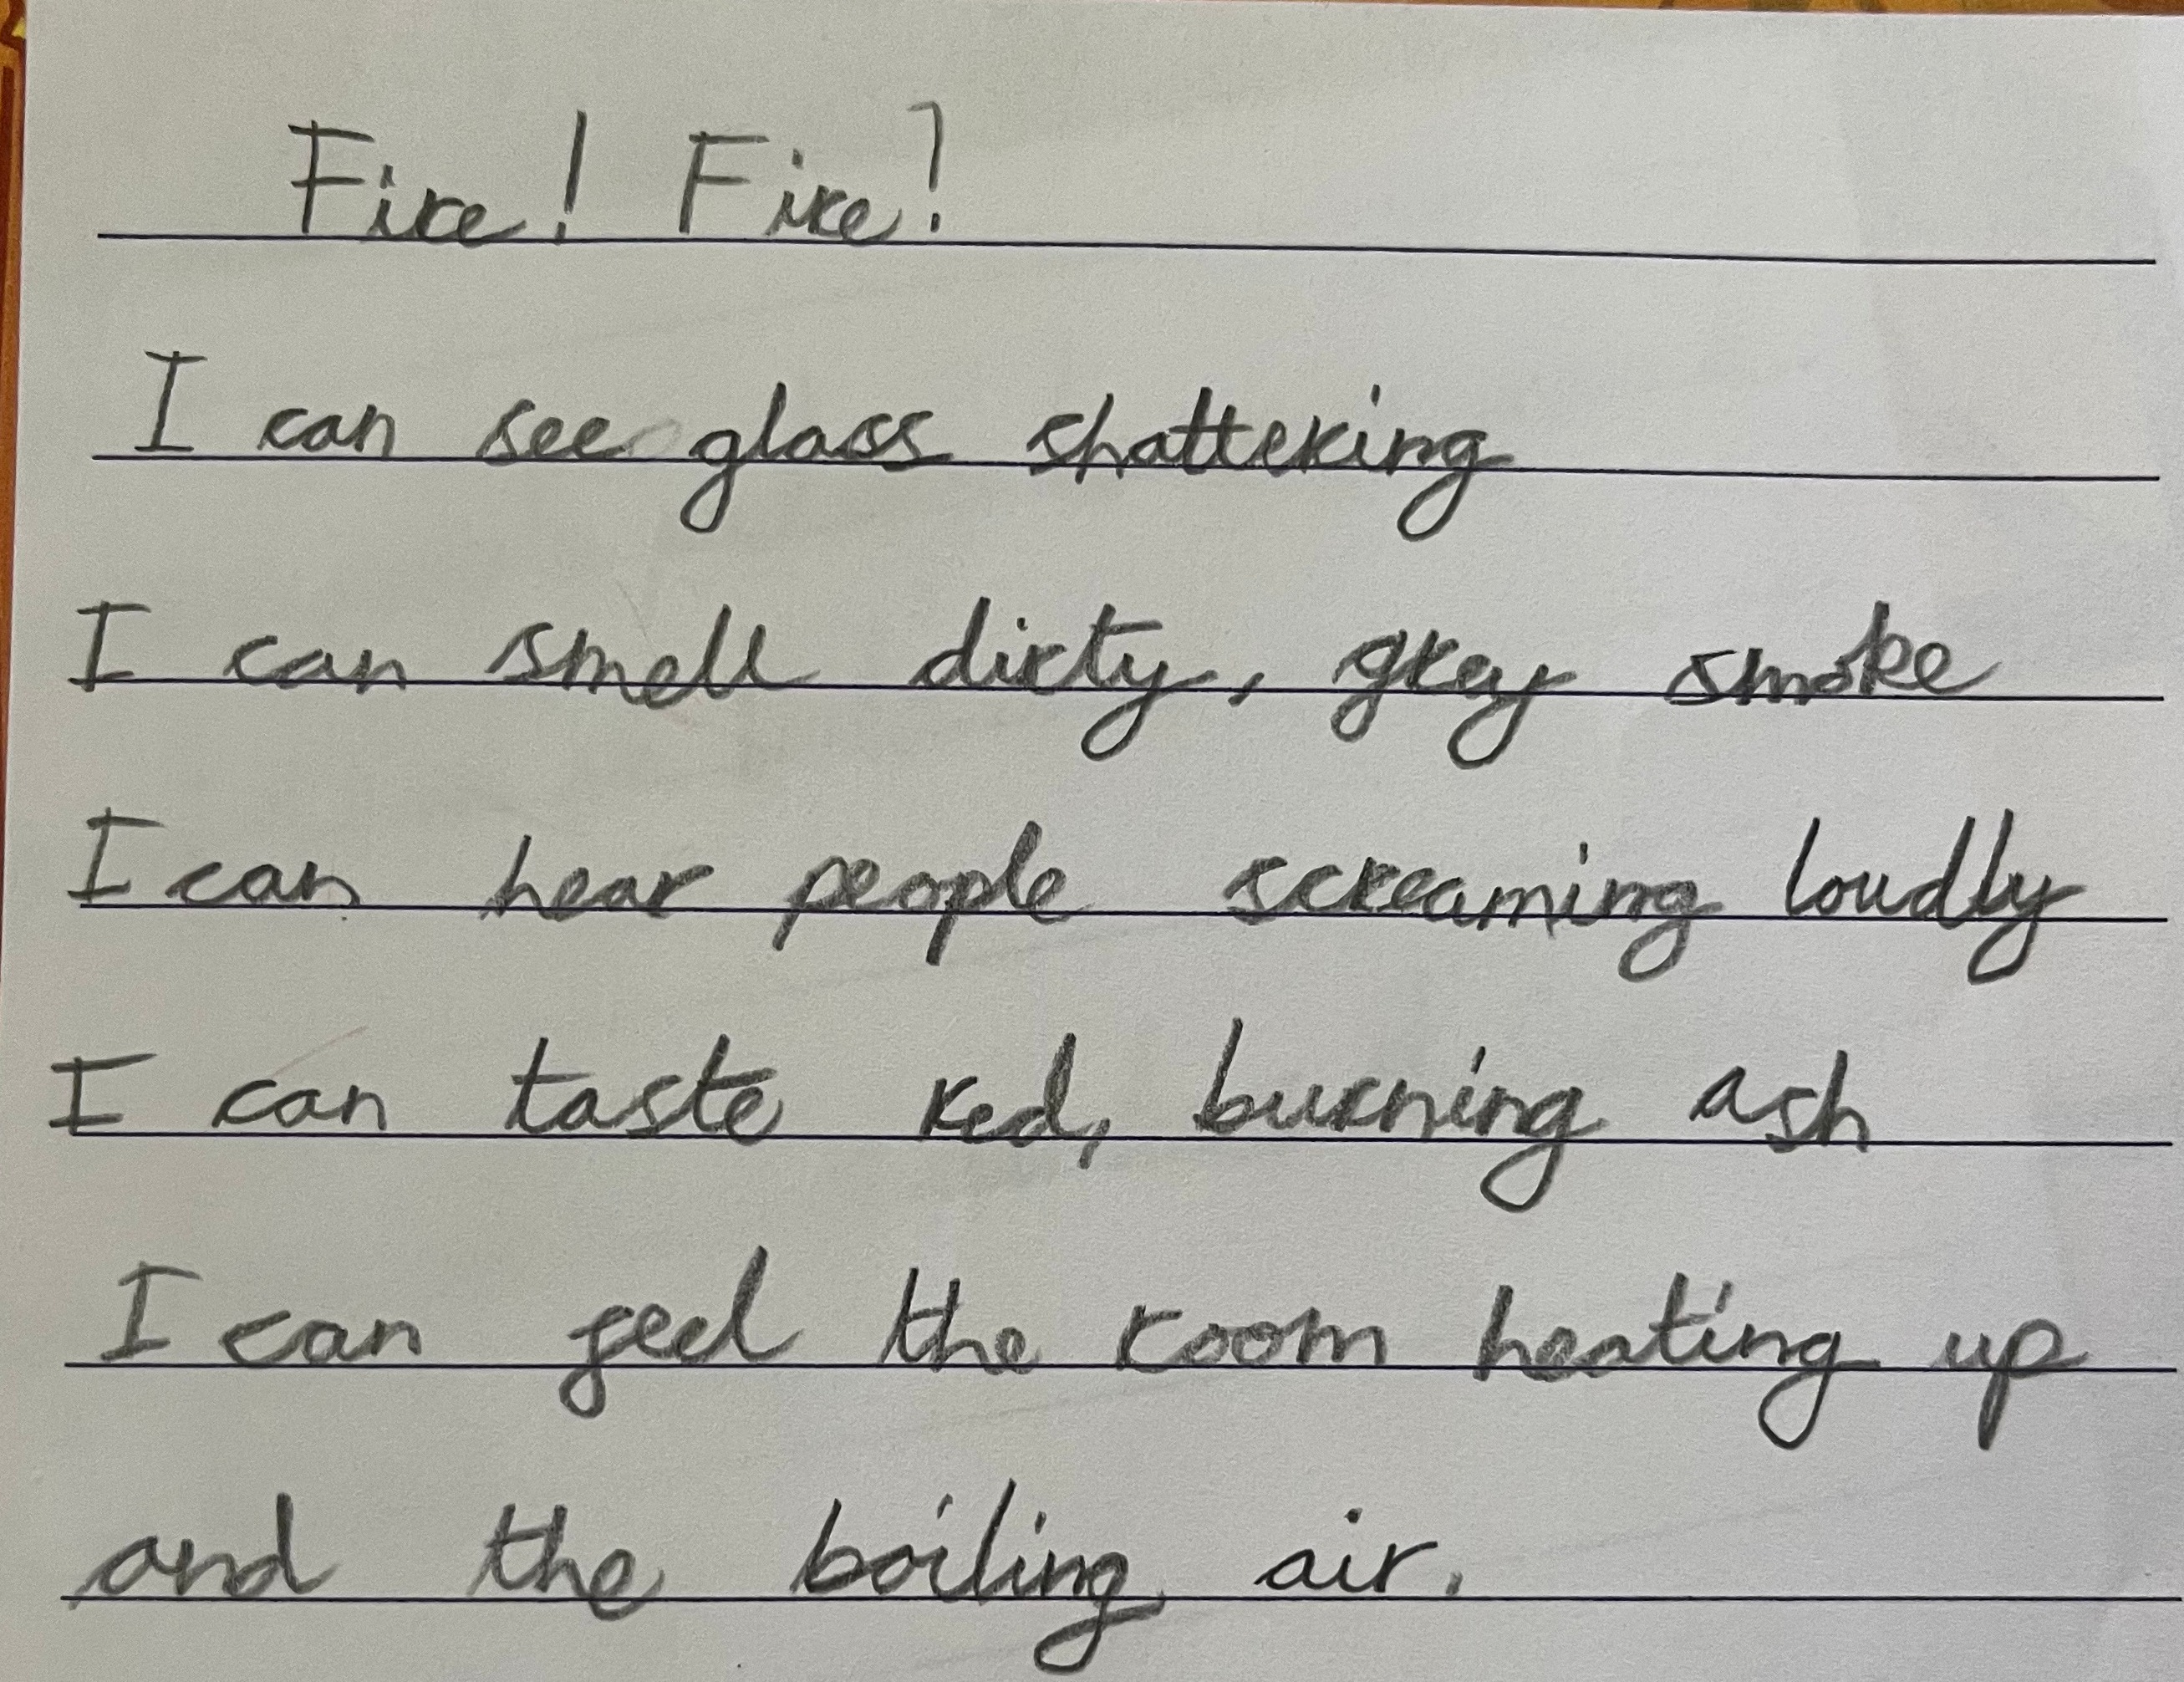 Fire! Fire!
I can see glass shattering
I can smell dirty, grey smoke
I can hear people screaming loudly
I can taste red, burning ash
I can feel the room heating up
and the boiling air.